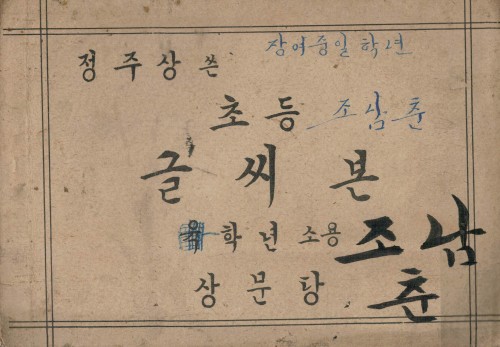 정주상 쓴
장여중일학년
초등
조남춘
글씨본
학년소용
상문당
조남
춘